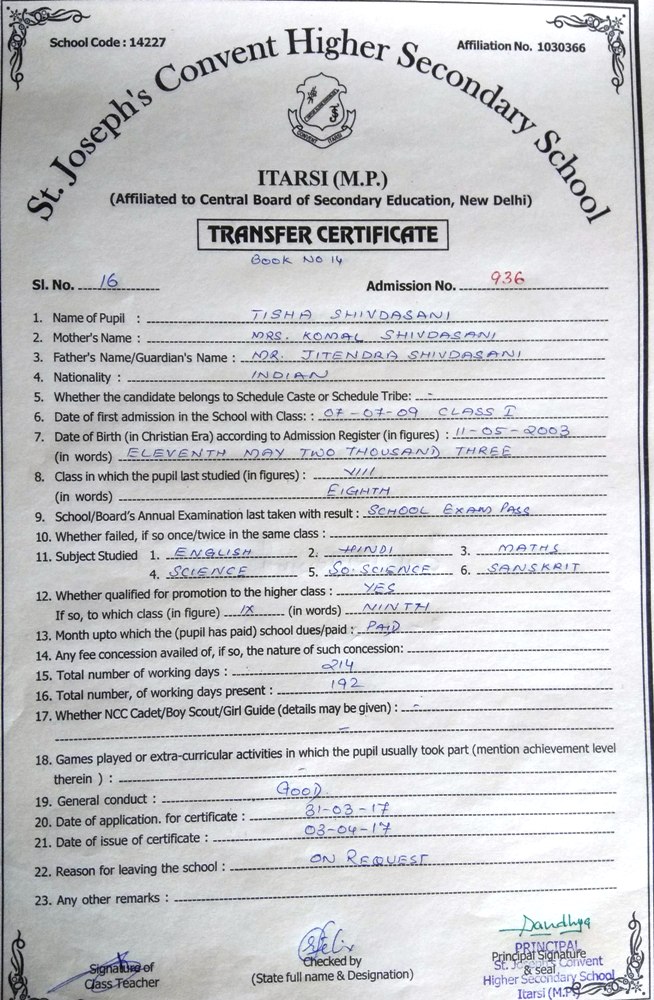 School Code : 14227
Affiliation No. 1030366
St. Joseph's Convent Higher Secondary School
CONVENT ITARSI
ITARSI (M.P.)
(Affiliated to Central Board of Secondary Education, New Delhi)
TRANSFER CERTIFICATE
BOOK NO 14
Sl. No. 16 Admission No. 936
1. Name of Pupil : TISHA SHIVDASANI
2. Mother's Name : MRS. KOMAL SHIVDASANI
3. Father's Name/Guardian's Name : MR. JITENDRA SHIVDASANI
4. Nationality : INDIAN
5. Whether the candidate belongs to Schedule Caste or Schedule Tribe: -
6. Date of first admission in the School with Class: : 07-07-09 CLASS I
7. Date of Birth (in Christian Era) according to Admission Register (in figures) : 11-05-2003
(in words) ELEVENTH MAY TWO THOUSAND THREE
8. Class in which the pupil last studied (in figures) : VIII
(in words) EIGHTH
9. School/Board's Annual Examination last taken with result : SCHOOL EXAM PASS
10. Whether failed, if so once/twice in the same class :
11. Subject Studied 1. ENGLISH 2. HINDI 3. MATHS
4. SCIENCE 5. SO. SCIENCE 6. SANSKRIT
12. Whether qualified for promotion to the higher class : YES
If so, to which class (in figure) IX (in words) NINTH
13. Month upto which the (pupil has paid) school dues/paid : PAID
14. Any fee concession availed of, if so, the nature of such concession:
15. Total number of working days : 214
16. Total number, of working days present : 192
17. Whether NCC Cadet/Boy Scout/Girl Guide (details may be given) : -
18. Games played or extra-curricular activities in which the pupil usually took part (mention achievement level
therein ) : -
19. General conduct : GOOD
20. Date of application. for certificate : 31-03-17
21. Date of issue of certificate : 03-04-17
22. Reason for leaving the school : ON REQUEST
23. Any other remarks :
Sandhya
PRINCIPAL
Signature of
Class Teacher
Checked by
(State full name & Designation)
Principal Signature
& seal
St. Joseph's Convent
Higher Secondary School
Itarsi (M.P.)